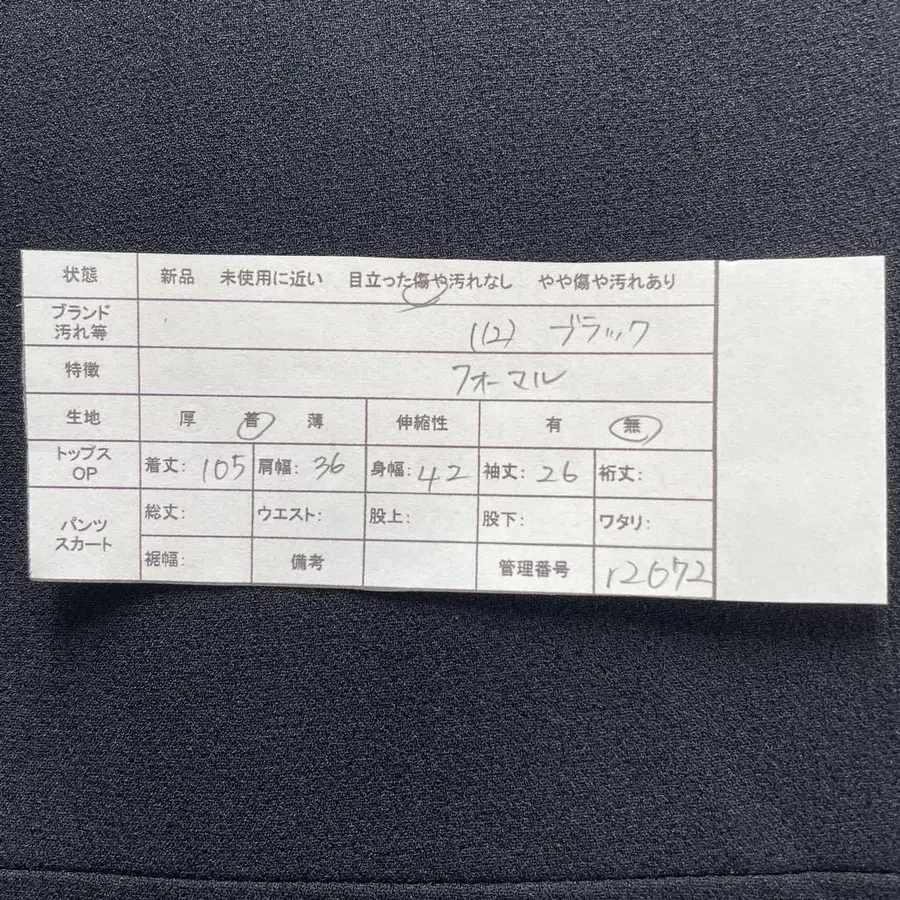 状態 新品 未使用に近い 目立った傷や汚れなし やや傷や汚れあり
ブランド
汚れ等 (12) ブラック
特徴 フォーマル
生地 厚 普 薄 伸縮性 有 無
トップス
OP 着丈: 105 肩幅: 36 身幅: 42 袖丈: 26 裄丈:
パンツ
スカート 総丈: ウエスト: 股上: 股下: ワタリ:
裾幅: 備考 管理番号 r2672